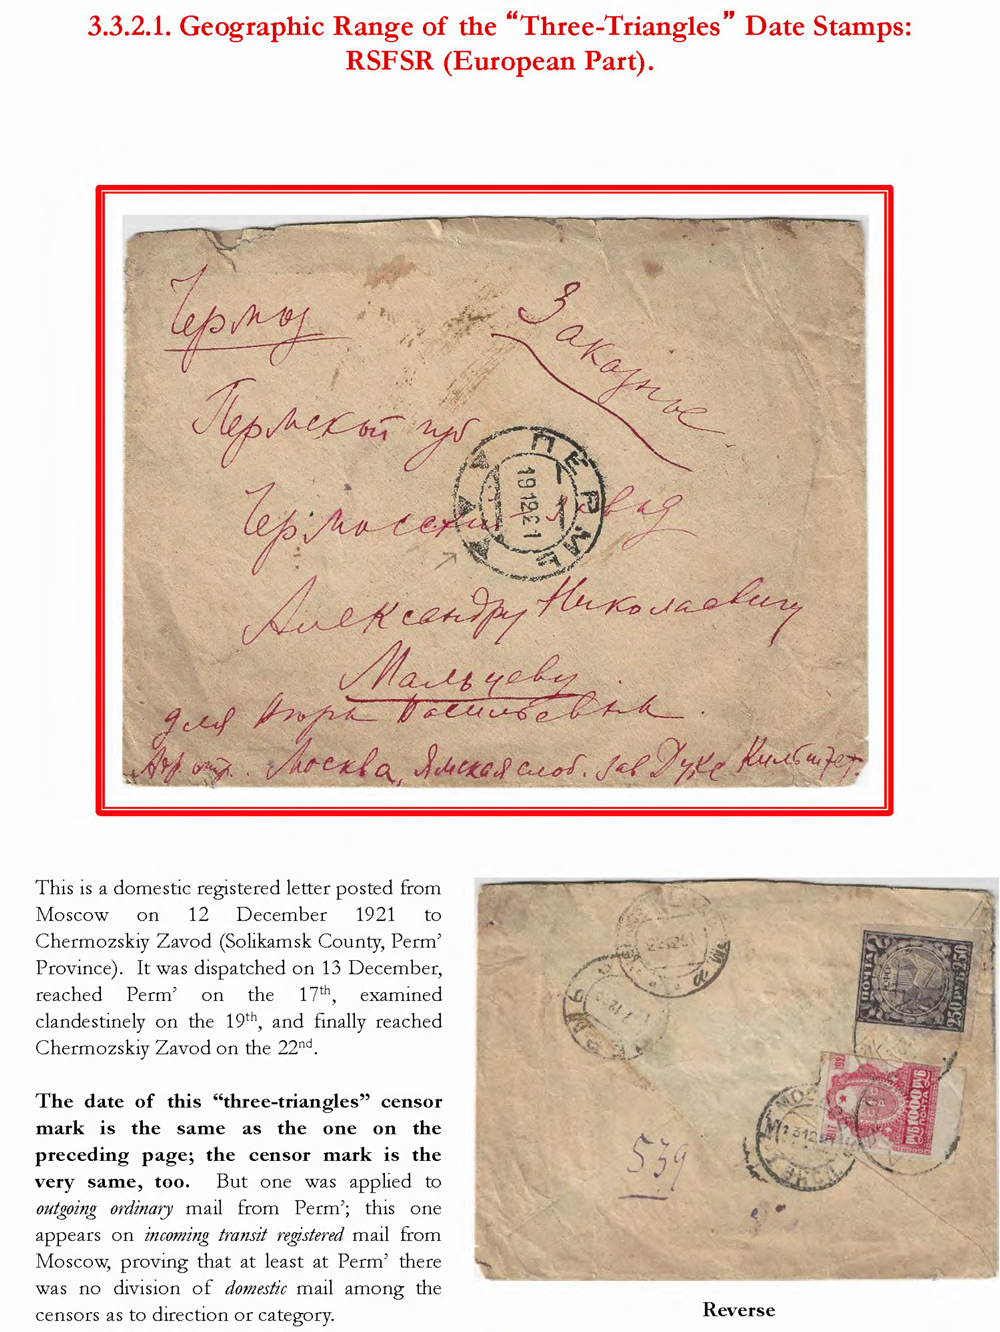 3.3.2.1. Geographic Range of the “Three-Triangles” Date Stamps:
RSFSR (European Part).
Чермоз
Заказное
Пермской губ
ПЕРМЬ
191221
Чермосский завод
Александру Николаевичу
Мальцеву
для Васильевны
Адр. отп. Москва, Ямская слоб. зав Дукс
This is a domestic registered letter posted from
Moscow on 12 December 1921 to
Chermozskiy Zavod (Solikamsk County, Perm’
Province). It was dispatched on 13 December,
reached Perm’ on the 17th, examined
clandestinely on the 19th, and finally reached
Chermozskiy Zavod on the 22nd.
The date of this “three-triangles” censor
mark is the same as the one on the
preceding page; the censor mark is the
very same, too. But one was applied to
outgoing ordinary mail from Perm’; this one
appears on incoming transit registered mail from
Moscow, proving that at least at Perm’ there
was no division of domestic mail among the
censors as to direction or category.
ПОЧТА
250 РУБ 250
РУБ 1000 РУБ
ПОЧТА
МОС
539
Reverse